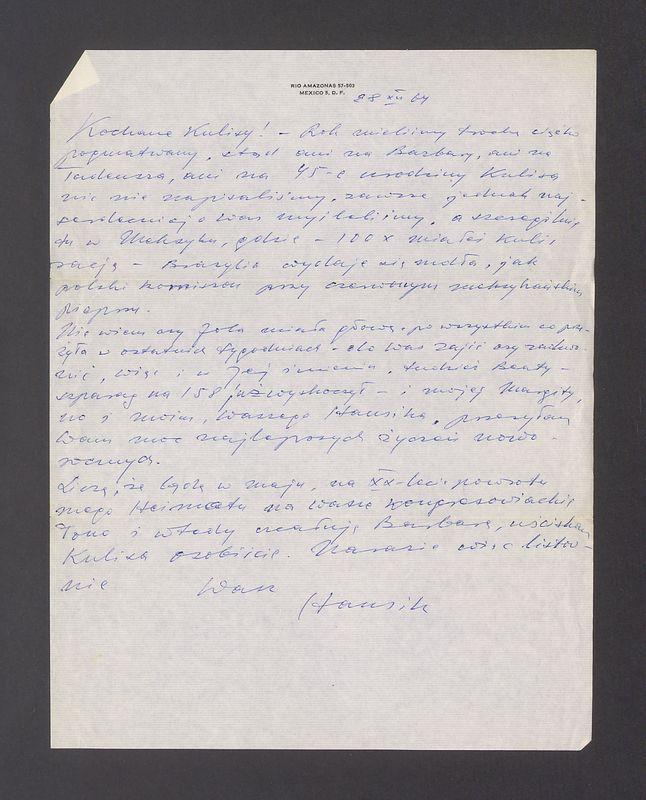 RIO AMAZONAS 57-503
MEXICO 5, D. F.
28 XII 64
Kochane Kulisy! – Rok mieliśmy trochę ciężko
pogmatwany, stąd ani na Barbary, ani na
Tadeusza, ani na 45-e urodziny Kulisa
nic nie napisaliśmy, zawsze jednak naj-
serdeczniej o Was myśleliśmy, a szczególnie
tu w Meksyku, gdzie – 100 x miałeś Kuli,
rację – Brazylia wydaje się mdła, jak
polski przy czerwonym meksykańskim
pieprzu.
Nie wiem czy Jola miała głowę po wszystkim co prze-
żyła w ostatnich tygodniach do Was zajść czy zadzwo-
nić, więc i w Jej imieniu, tudzież Beaty –
szparag na 158 już wyskoczył – i mojej Margity,
no i moim, Waszego Hansika, przesyłam
Wam moc najlepszych życzeń nowo-
rocznych.
Liczę, że będę w maju, na XX-lecie powrotu
mego Heimatu na Wasze kongresowiackie
łono i wtedy ucałuję Barbarę, uściskam
Kulisa osobiście. Narazie więc listow-
nie Wasz
Hansik